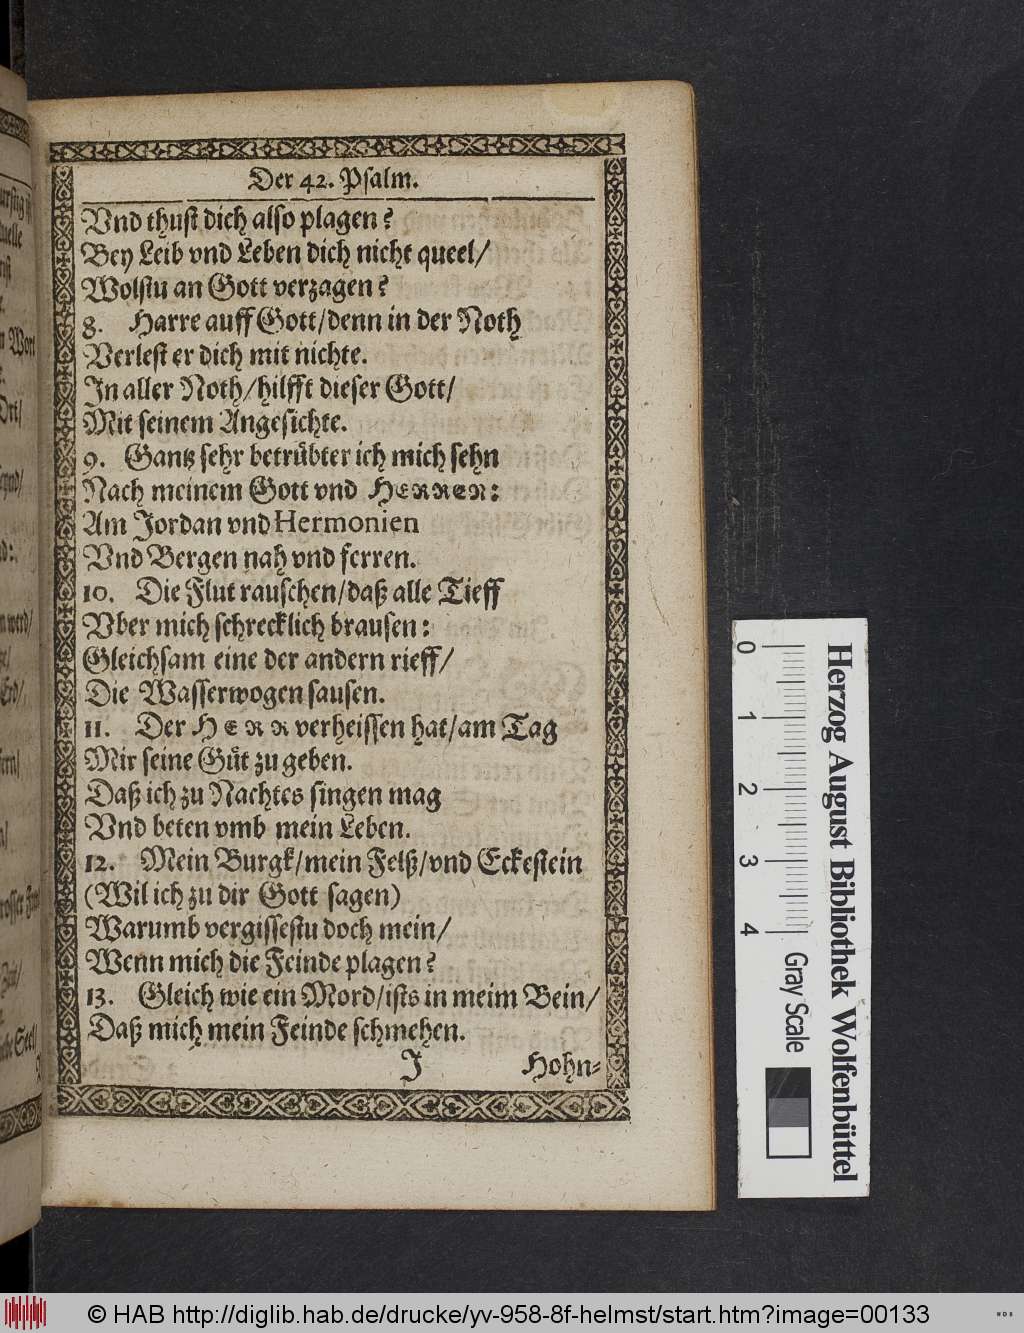 Der 42. Psalm.
Vnd thust dich also plagen?
Bey Leib vnd Leben dich nicht queel/
Wolstu an Gott verzagen?
8. Harre auff Gott/denn in der Noth
Verlest er dich mit nichte.
In aller Noth/hilfft dieser Gott/
Mit seinem Angesichte.
9. Gantz sehr betrübter ich mich sehn
Nach meinem Gott vnd HERREN:
Am Jordan vnd Hermonien
Vnd Bergen nah vnd ferren.
10. Die Flut rauschen/daß alle Tieff
Vber mich schrecklich brausen:
Gleichsam eine der andern rieff/
Die Wasserwogen sausen.
11. Der HERR verheissen hat/am Tag
Mir seine Güt zu geben.
Daß ich zu Nachtes singen mag
Vnd beten vmb mein Leben.
12. Mein Burgk/mein Felß/vnd Eckestein
(Wil ich zu dir Gott sagen)
Warumb vergissestu doch mein/
Wenn mich die Feinde plagen?
13. Gleich wie ein Mord/ists in meim Bein/
Daß mich mein Feinde schmehen.
J Hohn-
0 1 2 3 4
Gray Scale
Herzog August Bibliothek Wolfenbüttel
© HAB http://diglib.hab.de/drucke/yv-958-8f-helmst/start.htm?image=00133